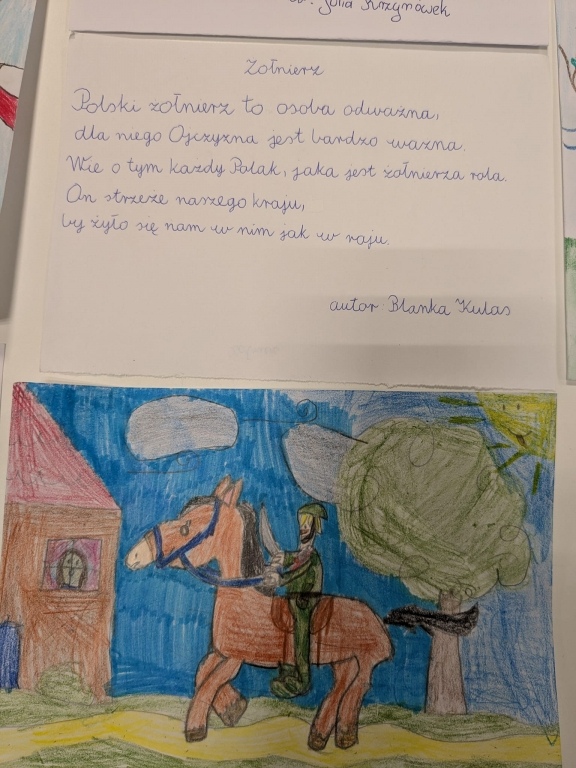 Julia Krzynówek
Żołnierz
Polski żołnierz to osoba odważna,
dla niego Ojczyzna jest bardzo ważna.
Wie o tym każdy Polak, jaka jest żołnierza rola.
On strzeże naszego kraju,
by żyło się nam w nim jak w raju.
autor: Blanka Kulas